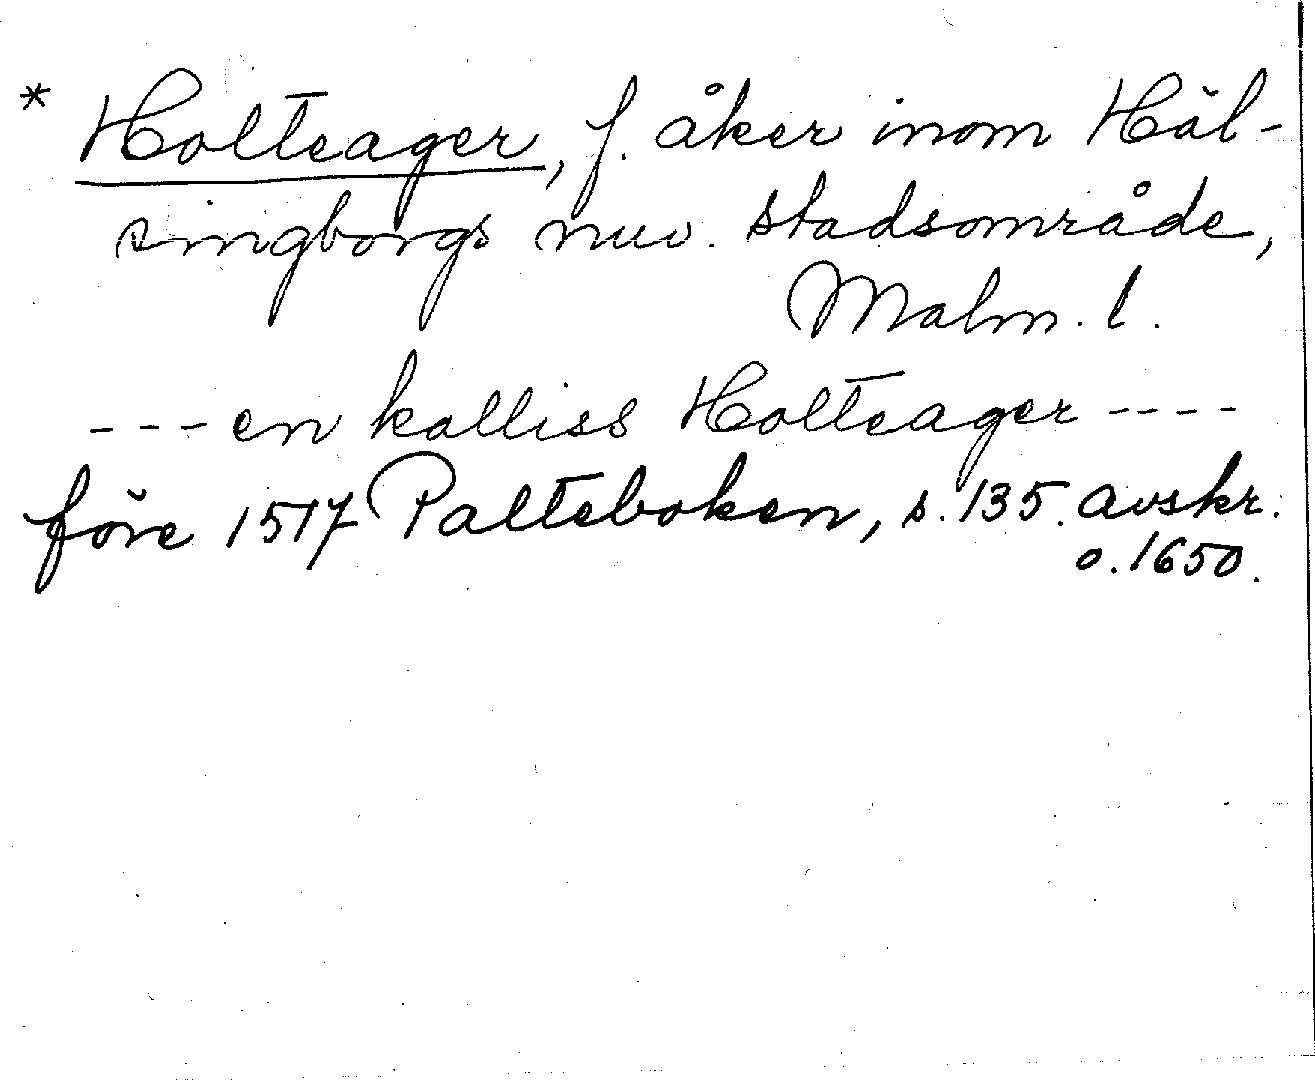 * Holteager, f. åker inom Häl-
singborgs nuv. stadsområde,
Malm. l.
---en kalliss Holteager----
före 1517 Palteboken, s. 135. avskr.
o. 1650.